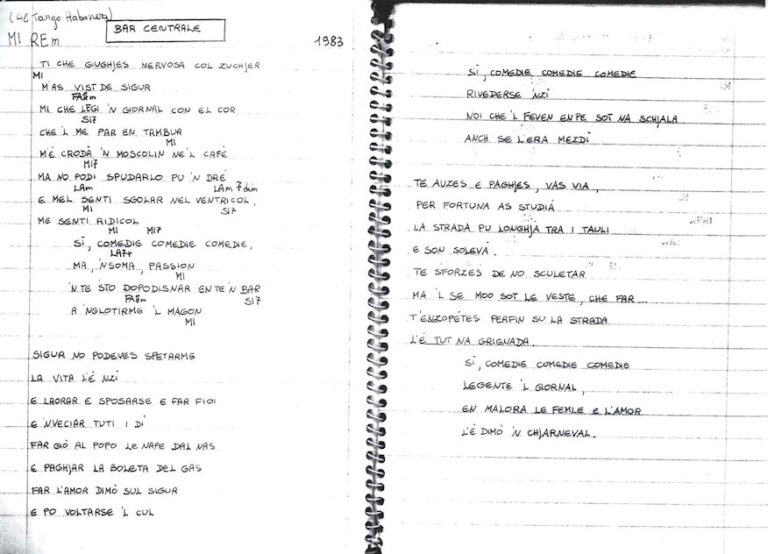 (4E Tango Habanera)
BAR CENTRALE
MI REm
1983
TI CHE GIUGHJES NERVOSA COL ZUCHJER
MI
M'AS VIST DE SIGUR
FA#m
MI CHE LÉGI 'N GIORNAL CON EL COR
SI7
CHE 'L ME PAR EN TAMBUR
MI
M'É CRODÀ 'N MOSCOLIN NE'L CAFÈ
MI7
MA NO PODI SPUDARLO PU 'N DRÉ
LAm LAm 7dim
E MEL SENTI SGOLAR NEL VENTRICOL,
MI SI7
ME SENTI RIDICOL
MI MI7
SI, COMEDIE COMEDIE COMEDIE,
LA7+
MA, 'NSOMA, PASSION
MI
'N TE 'STO DOPODISNAR EN TE'N BAR
FA#m SI7
A 'NGLOTIRME 'L MAGON
MI
SIGUR NO PODEVES SPETARME
LA VITA L'É 'NZI
E LAORAR E SPOSARSE E FAR FIOI
E 'NVECIAR TUTI I DÌ
FAR GIÒ AL POPO LE NAPE DAL NAS
E PAGHJAR LA BOLETA DEL GAS
FAR L'AMOR DIMÒ SUL SIGUR
E PO VOLTARSE 'L CUL
SI, COMEDIE COMEDIE COMEDIE
RIVEDERSE 'NZI
NOI CHE 'L FEVEN EN PE SOT NA SCHJALA
ANCH SE L'ERA MEZDÌ
TE AUZES E PAGHJES, VAS VIA,
PER FORTUNA AS STUDIÀ
LA STRADA PU LONGHJA TRA I TAULI
E SON SOLEVÀ.
TE SFORZES DE NO SCULETAR
MA 'L SE MOO SOT LE VESTE, CHE FAR...
T'ENZOPÉTES PERFIN SU LA STRADA
L'É TUT NA GRIGNADA.
SI, COMEDIE COMEDIE COMEDIE
LEGENTE 'L GIORNAL,
EN MALORA LE FEMLE E L'AMOR
L'É DIMÒ 'N CHJARNEVAL.